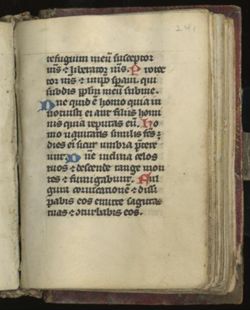 refugium meū susceptor
ms̄ ⁊ liberator ms̄. Protec
tor ms̄ ⁊ in ip̄o spaui. qui
subdis pp̄lm meū sub me.
Dn̄e quid ē homo quia in
notuisti ei aut filius homi
nis quia reputas eū. Ho
mo uanitatis similis fcs̄ ē
dies ei sicut umbra p̄tere
unt. Dn̄e inclina celos
tuos ⁊ descende tange mon
tes ⁊ fumigabunt. Ful
gura coruscationē ⁊ dissi
pabis eos emitte sagittas
tuas ⁊ ↄturbabis eos.